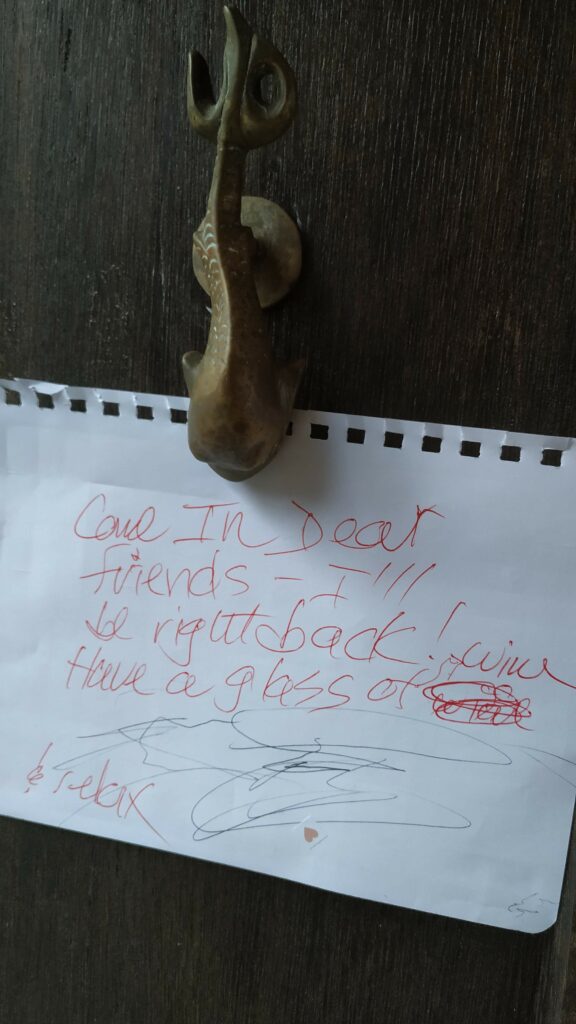 Come In Dear
friends - I'll
be right back!
Have a glass of wine
& relax